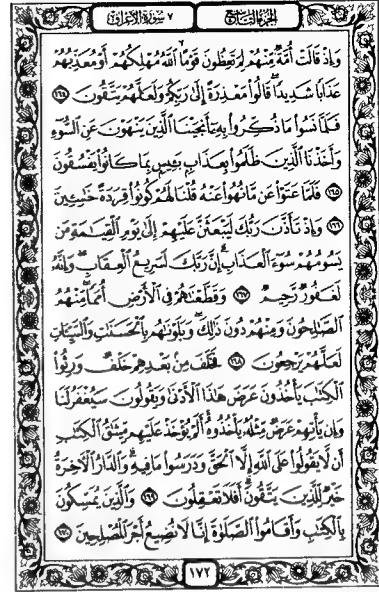 الجزء التاسع
٧ سورة الأعراف
وَإِذْ قَالَتْ أُمَّةٌ مِّنْهُمْ لِمَ تَعِظُونَ قَوْمًا ۙ ٱللَّهُ مُهْلِكُهُمْ أَوْ مُعَذِّبُهُمْ
عَذَابًا شَدِيدًا ۖ قَالُوا۟ مَعْذِرَةً إِلَىٰ رَبِّكُمْ وَلَعَلَّهُمْ يَتَّقُونَ ١٦٤
فَلَمَّا نَسُوا۟ مَا ذُكِّرُوا۟ بِهِۦٓ أَنجَيْنَا ٱلَّذِينَ يَنْهَوْنَ عَنِ ٱلسُّوٓءِ
وَأَخَذْنَا ٱلَّذِينَ ظَلَمُوا۟ بِعَذَابٍۭ بَـِٔيسٍۭ بِمَا كَانُوا۟ يَفْسُقُونَ
١٦٥ فَلَمَّا عَتَوْا۟ عَن مَّا نُهُوا۟ عَنْهُ قُلْنَا لَهُمْ كُونُوا۟ قِرَدَةً خَٰسِـِٔينَ
١٦٦ وَإِذْ تَأَذَّنَ رَبُّكَ لَيَبْعَثَنَّ عَلَيْهِمْ إِلَىٰ يَوْمِ ٱلْقِيَٰمَةِ مَن
يَسُومُهُمْ سُوٓءَ ٱلْعَذَابِ ۗ إِنَّ رَبَّكَ لَسَرِيعُ ٱلْعِقَابِ ۖ وَإِنَّهُۥ
لَغَفُورٌ رَّحِيمٌ ١٦٧ وَقَطَّعْنَٰهُمْ فِى ٱلْأَرْضِ أُمَمًا ۖ مِّنْهُمُ
ٱلصَّٰلِحُونَ وَمِنْهُمْ دُونَ ذَٰلِكَ ۖ وَبَلَوْنَٰهُم بِٱلْحَسَنَٰتِ وَٱلسَّيِّـَٔاتِ
لَعَلَّهُمْ يَرْجِعُونَ ١٦٨ فَخَلَفَ مِنۢ بَعْدِهِمْ خَلْفٌ وَرِثُوا۟
ٱلْكِتَٰبَ يَأْخُذُونَ عَرَضَ هَٰذَا ٱلْأَدْنَىٰ وَيَقُولُونَ سَيُغْفَرُ لَنَا
وَإِن يَأْتِهِمْ عَرَضٌ مِّثْلُهُۥ يَأْخُذُوهُ ۚ أَلَمْ يُؤْخَذْ عَلَيْهِم مِّيثَٰقُ ٱلْكِتَٰبِ
أَن لَّا يَقُولُوا۟ عَلَى ٱللَّهِ إِلَّا ٱلْحَقَّ وَدَرَسُوا۟ مَا فِيهِ ۗ وَٱلدَّارُ ٱلْـَٔاخِرَةُ
خَيْرٌ لِّلَّذِينَ يَتَّقُونَ ۗ أَفَلَا تَعْقِلُونَ ١٦٩ وَٱلَّذِينَ يُمَسِّكُونَ
بِٱلْكِتَٰبِ وَأَقَامُوا۟ ٱلصَّلَوٰةَ إِنَّا لَا نُضِيعُ أَجْرَ ٱلْمُصْلِحِينَ ١٧٠
١٧٢